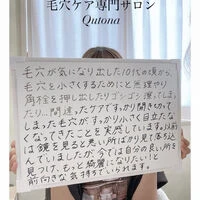 毛穴ケア専門サロン
Qutona
毛穴が気になり出した10代の頃から、
毛穴を小さくするためにと無理やり
角栓を押し出したりゴシゴシ洗ってしまっ
たり…間違ったケアですっかり開き切って
しまった毛穴がすっかり小さく目立たな
くなってきたことを実感しています。以前
は鏡を見ると悪い所ばかり見て落ち込
んでいましたが、今では自分の良い所を
見つけ、もっと綺麗になりたい!と
前向きな気持ちでいられます。